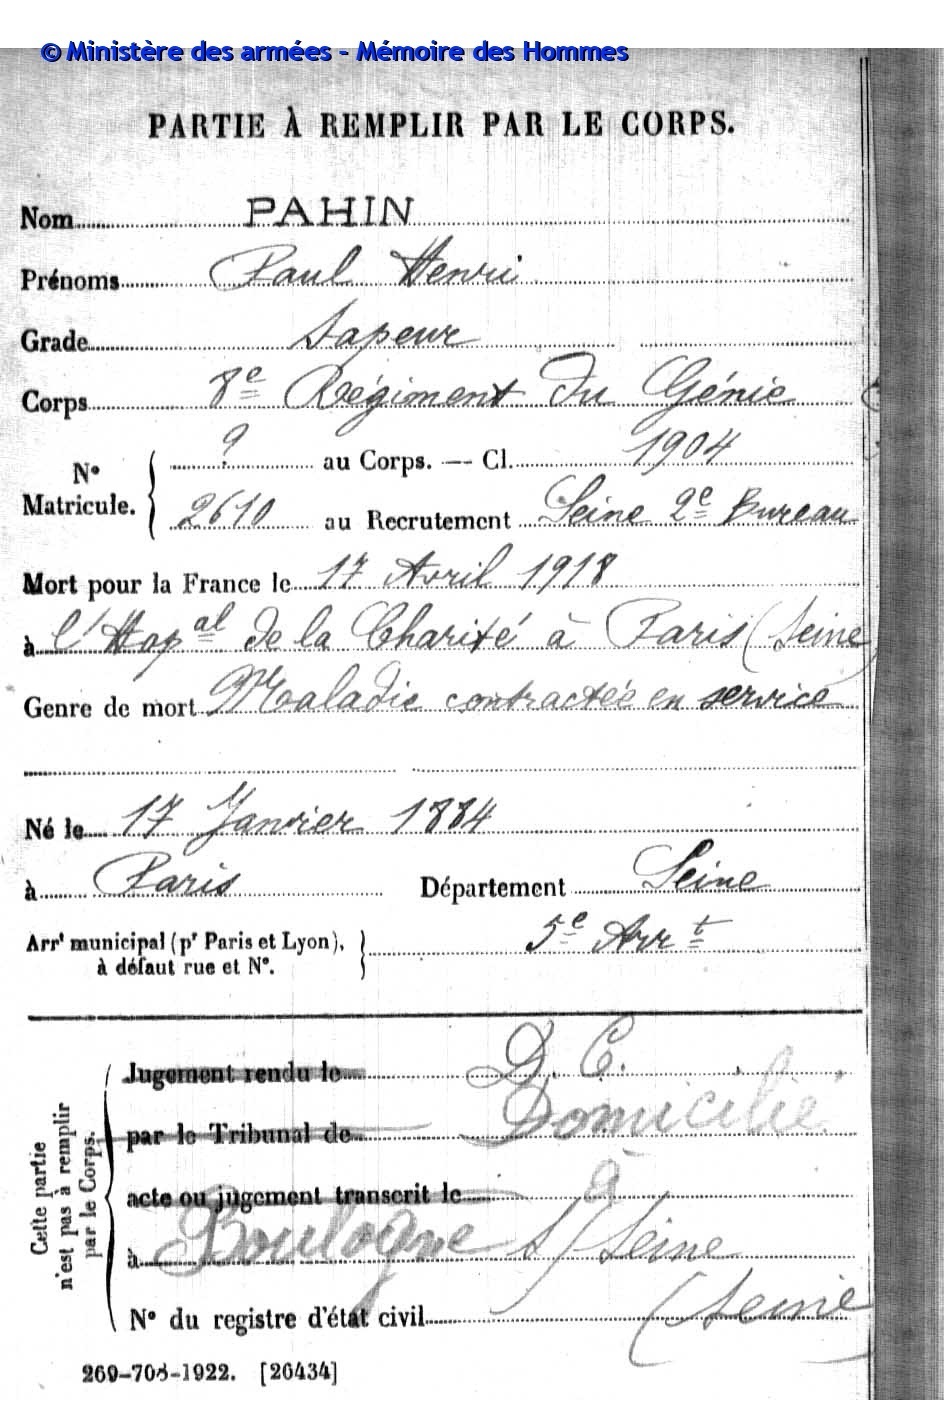 © Ministère des armées - Mémoire des Hommes
PARTIE À REMPLIR PAR LE CORPS.
Nom PAHIN
Prénoms Paul Henri
Grade Sapeur
Corps 8e Régiment du Génie
N° Matricule. { ? au Corps. — Cl. 1904
2610 au Recrutement Seine 2e Bureau
Mort pour la France le 17 Avril 1918
à l'Hopal de la Charité à Paris (Seine)
Genre de mort Maladie contractée en service
Né le 17 Janvier 1884
à Paris Département Seine
Arrt municipal (pr Paris et Lyon), } 5e Arrt
à défaut rue et N°.
Cette partie
n'est pas à remplir
par le Corps.
Jugement rendu le D. C.
par le Tribunal de Domicilié
acte ou jugement transcrit le à
à Boulogne s/ Seine
N° du registre d'état civil (Seine
269-708-1922. [26434]